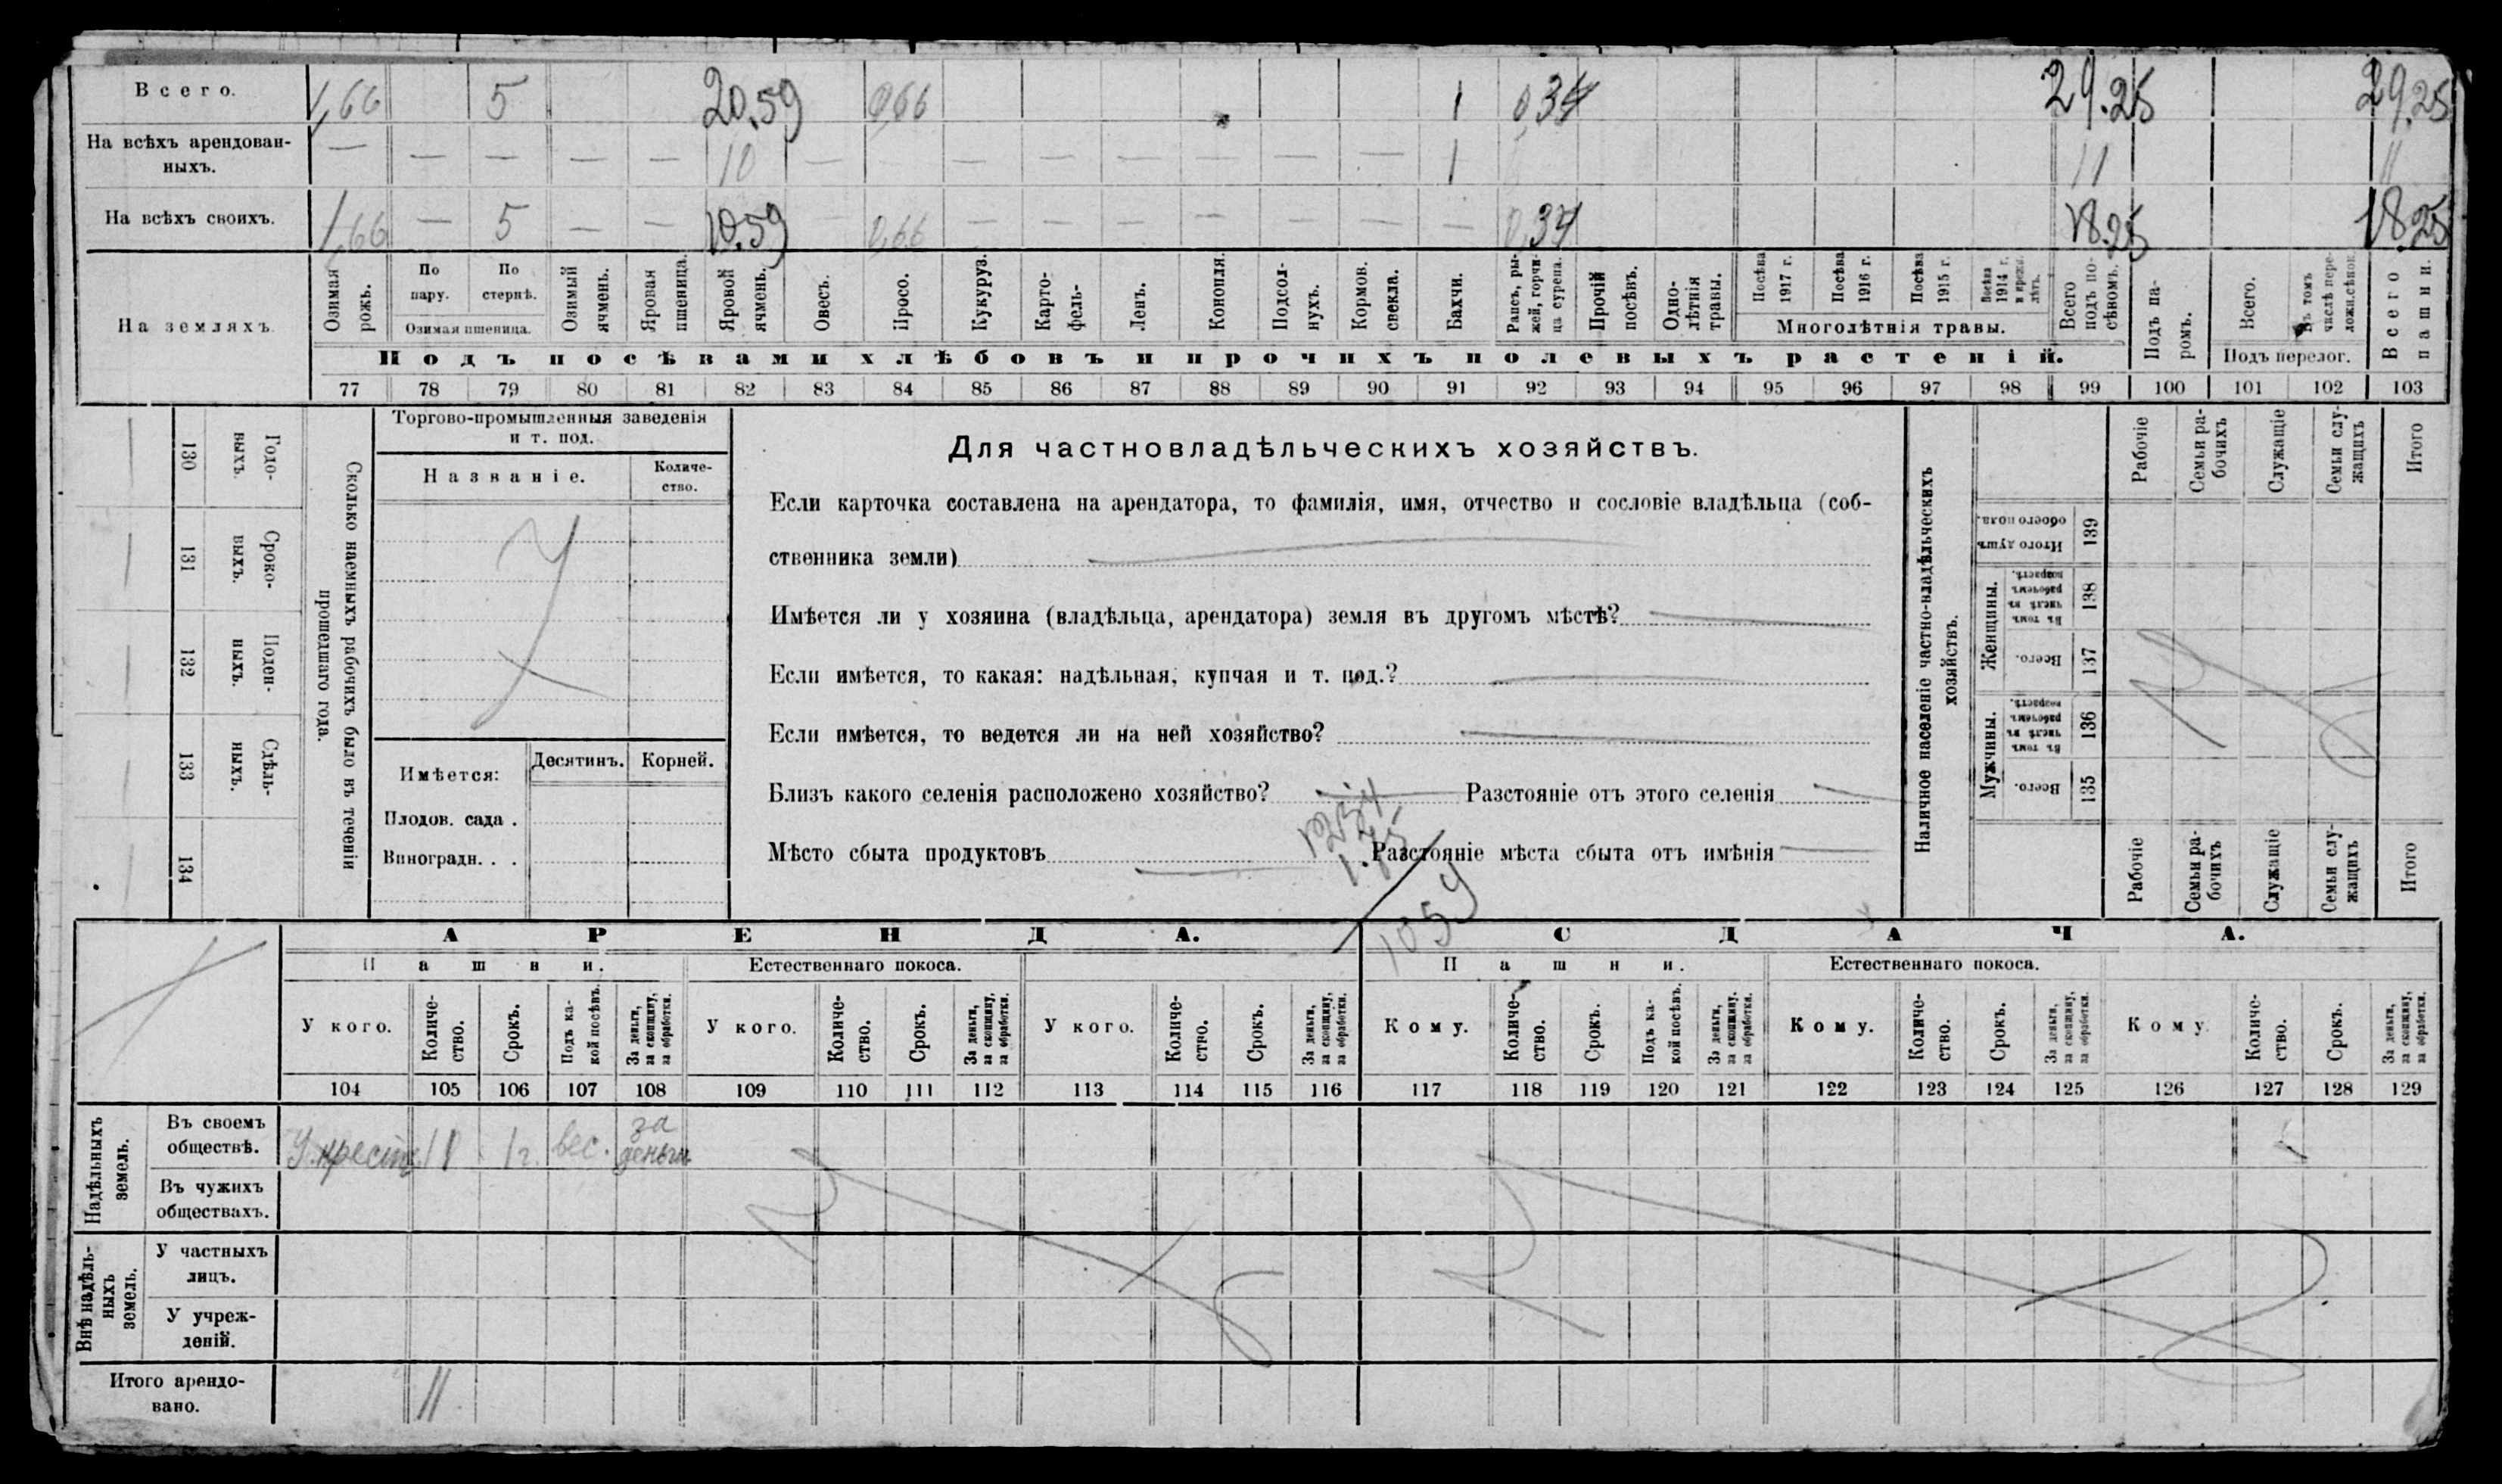 Всего. 1,66 5 20.59 0,66 1 0,34 29.25 29.25
На всѣхъ арендован-
ныхъ. — — — — — 10 — — — — — — — — 1 11 11
На всѣхъ своихъ. 1,66 — 5 — — 10.59 0,66 — — — — — — — 0,34 18.25 18.25
На земляхъ.
Озимая рожь.
По пару.
По стернѣ.
Озимая пшеница.
Озимый ячмень.
Яровая пшеница.
Яровой ячмень.
Овесъ.
Просо.
Кукуруз.
Карто-
фель-
Ленъ.
Конопля.
Подсол-
нухъ.
Кормов. свекла.
Бахчи.
Рапсъ, ры-
жей, горчи-
ца сурепа.
Прочій посѣвъ.
Одно-
лѣтнія травы.
Посѣва 1917 г.
Посѣва 1916 г.
Посѣва 1915 г.
Посѣва 1914 г.
Многолѣтнія травы.
Всего подъ по-
сѣвомъ.
Подъ па-
ромъ.
Всего.
Въ томъ числѣ пере-
ложн. сѣнок.
Подъ перелог.
Всего пашни.
Подъ посѣвами хлѣбовъ и прочихъ полевыхъ растеній.
77 78 79 80 81 82 83 84 85 86 87 88 89 90 91 92 93 94 95 96 97 98 99 100 101 102 103
Сколько наемныхъ рабочихъ было въ теченіи
прошедшаго года.
Годо-
выхъ.
130
Сроко-
выхъ.
131
Поден-
ныхъ.
132
Сдѣль-
ныхъ.
133
134
Торгово-промышленныя заведенія
и т. под.
Названіе.
Количе-
ство.
Имѣется:
Десятинъ. Корней.
Плодов. сада .
Виноградн. . .
Для частновладѣльческихъ хозяйствъ.
Если карточка составлена на арендатора, то фамилія, имя, отчество и сословіе владѣльца (соб-
ственника земли)
Имѣется ли у хозяина (владѣльца, арендатора) земля въ другомъ мѣстѣ?
Если имѣется, то какая: надѣльная, купчая и т. под.?
Если имѣется, то ведется ли на ней хозяйство?
Близъ какого селенія расположено хозяйство? Разстояніе отъ этого селенія
Мѣсто сбыта продуктовъ Разстояніе мѣста сбыта отъ имѣнія
1.75
1059
Наличное населеніе частно-владѣльческихъ
хозяйствъ.
Рабочіе
Семьи ра-
бочихъ
Служащіе
Семьи слу-
жащихъ
Итого
Итого душъ обоего пола.
139
Женщины.
Въ томъ числѣ въ рабочемъ возрастѣ.
138
Всего.
137
Мужчины.
Въ томъ числѣ въ рабочемъ возрастѣ.
136
Всего.
135
Рабочіе
Семьи ра-
бочихъ
Служащіе
Семьи слу-
жащихъ
Итого
АРЕНДА. СДАЧА.
Пашни. Естественнаго покоса. Пашни. Естественнаго покоса.
У кого.
Количе-
ство.
Срокъ.
Подъ ка-
кой посѣвъ.
За деньги,
за скопщину,
за обработки.
У кого.
Количе-
ство.
Срокъ.
За деньги,
за скопщину,
за обработки.
У кого.
Количе-
ство.
Срокъ.
За деньги,
за скопщину,
за обработки.
Кому.
Количе-
ство.
Срокъ.
Подъ ка-
кой посѣвъ.
За деньги,
за скопщину,
за обработки.
Кому.
Количе-
ство.
Срокъ.
За деньги,
за скопщину,
за обработки.
Кому.
Количе-
ство.
Срокъ.
За деньги,
за скопщину,
за обработки.
104 105 106 107 108 109 110 111 112 113 114 115 116 117 118 119 120 121 122 123 124 125 126 127 128 129
Надѣльныхъ
земель.
Въ своемъ
обществѣ.
У крест. 11 1 г. вес. за
деньги
Въ чужихъ
обществахъ.
Внѣ надѣль-
ныхъ
земель.
У частныхъ
лицъ.
У учреж-
деній.
Итого арендо-
вано. 11